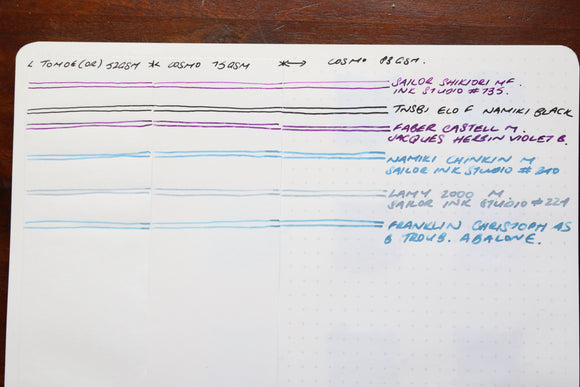 TOMOE(OR) 52GSM * COSMO 75GSM * COSMO 83GSM.
SAILOR SHIKIORI MF.
INK STUDIO #735.
TWSBI ECO F NAMIKI BLACK
FABER CASTELL M.
JACQUES HERBIN VIOLET B.
NAMIKI CHINKIN M
SAILOR INK STUDIO # 240
LAMY 2000 M
SAILOR INK STUDIO #224
FRANKLIN CHRISTOPH AS
B TROUB. ABALONE.